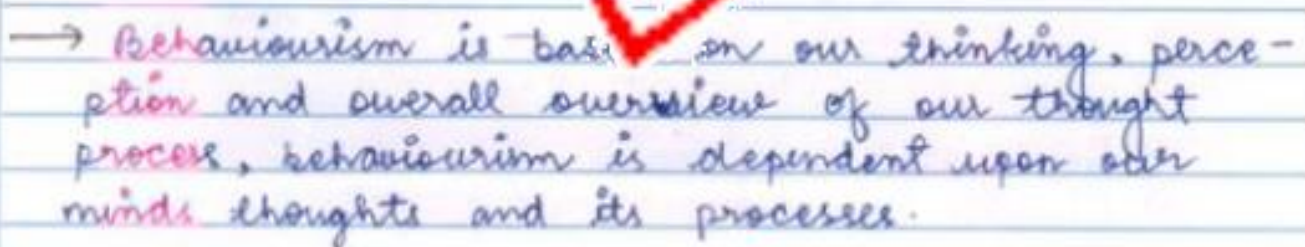 → Behaviourism is bas on our thinking, perce-
ption and overall overview of our thought
process, behaviourism is dependent upon our
minds thoughts and its processes.